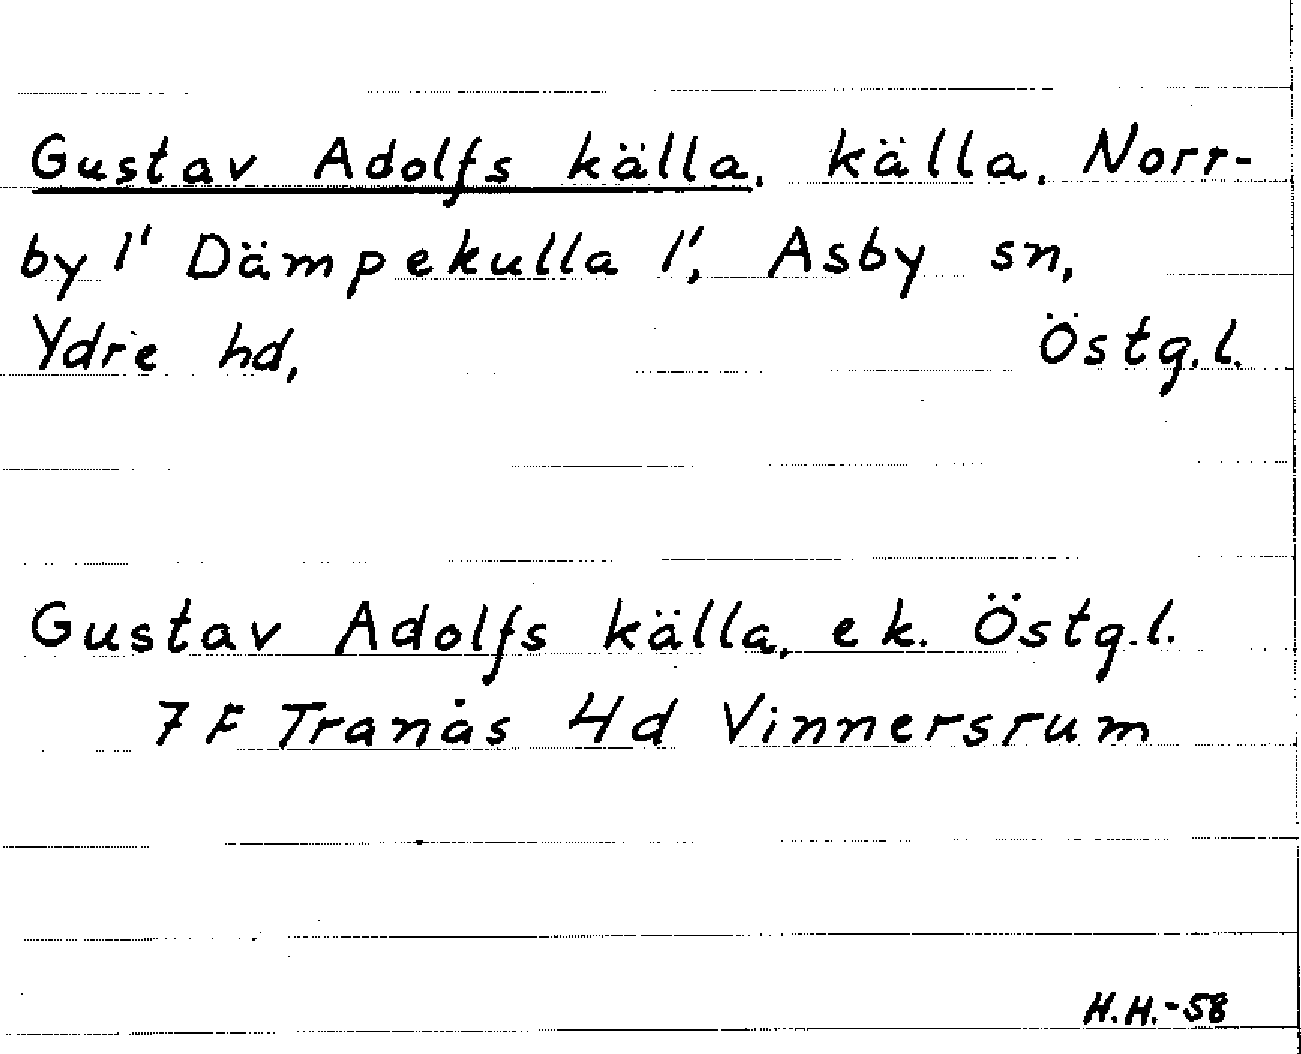 Gustav Adolfs källa, källa, Norr-
by 1' Dämpekulla 1', Asby sn,
Ydre hd, Östg.l.
Gustav Adolfs källa, ek. Östg.l.
7 F Tranås 4d Vinnersrum
H.H.-58